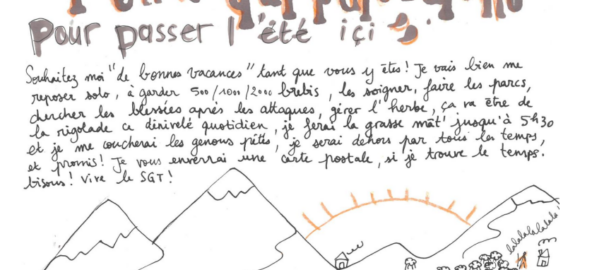 Pour passer l'été içi
Souhaitez moi "de bonnes vacances" tant que vous y êtes! Je vais bien me
reposer solo, à garder 500/1000/2000 brebis, les soigner, faire les parcs,
chercher les blessées après les attaques, gérer l'herbe, ça va être de
la rigolade ce dénivelé quotidien, je ferai la grasse mat' jusqu'à 5h30
et je me coucherai les genous pétés, je serai dehors par tous les temps,
et promis! Je vous enverrai une carte postale, si je trouve le temps.
bisous! Vive le SGT!
lalalalalalala